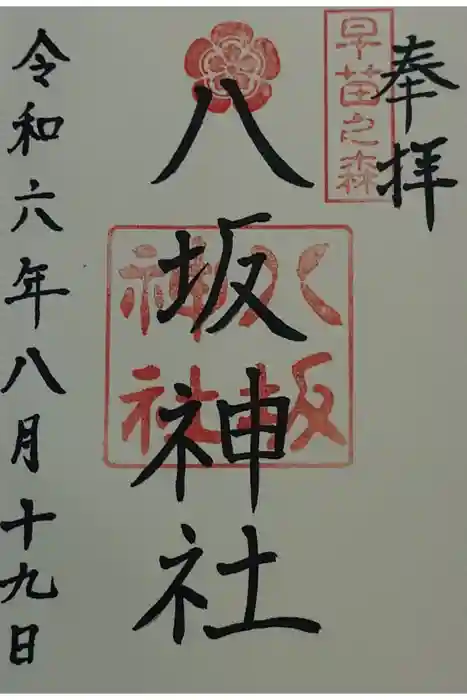 奉拝
早苗之森
八坂神社
八坂
神社
令和六年八月十九日